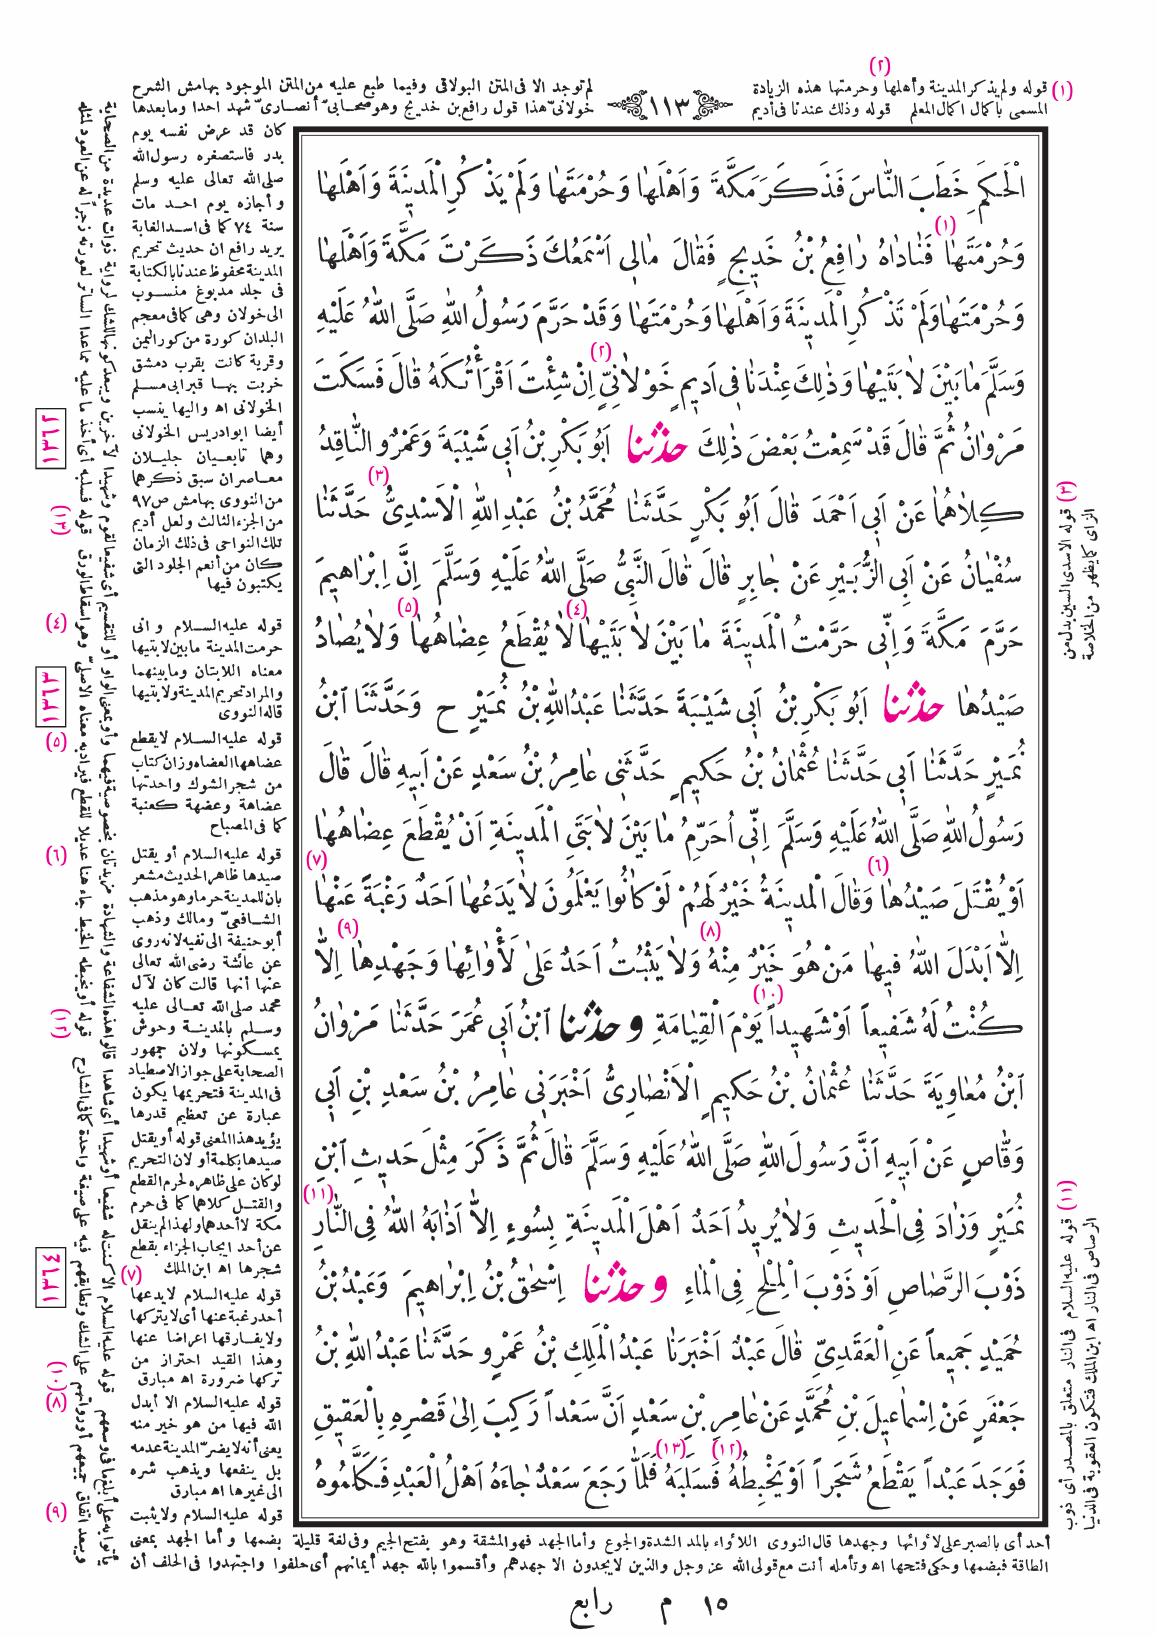 (١) قوله ولم يذكر المدينة وأهلها وحرمتها هذه الزيادة
(٢)
لم توجد الا فى المتن البولاقى وفيما طبع عليه من المتن الموجود بهامش الشرح
المسمى باكمال اكمال المعلم قوله وذلك عندنا فى أديم
١١٣
خولانىّ هذا قول رافع بن خديج وهو صحابىّ أنصارىّ شهد احدا وما بعدها
اَلْحَكَمِ خَطَبَ النَّاسَ فَذَكَرَ مَكَّةَ وَاَهْلَهَا وَحُرْمَتَهَا وَلَمْ يَذْكُرِ الْمَدِينَةَ وَاَهْلَهَا
وَحُرْمَتَهَا (١) فَنَادَاهُ رَافِعُ بْنُ خَدِيجٍ فَقَالَ مَالِى اَسْمَعُكَ ذَكَرْتَ مَكَّةَ وَاَهْلَهَا
وَحُرْمَتَهَا وَلَمْ تَذْكُرِ الْمَدِينَةَ وَاَهْلَهَا وَحُرْمَتَهَا وَقَدْ حَرَّمَ رَسُولُ اللهِ صَلَّى اللهُ عَلَيْهِ
وَسَلَّمَ مَا بَيْنَ لَابَتَيْهَا وَذَلِكَ عِنْدَنَا فِى اَدِيمٍ خَوْلَانِيٍّ (٢) اِنْ شِئْتَ اَقْرَأْتُكَهُ قَالَ فَسَكَتَ
مَرْوَانُ ثُمَّ قَالَ قَدْ سَمِعْتُ بَعْضَ ذَلِكَ حدثنا اَبُو بَكْرِ بْنُ اَبِى شَيْبَةَ وَعَمْرٌو النَّاقِدُ
كِلَاهُمَا عَنْ اَبِى اَحْمَدَ قَالَ اَبُو بَكْرٍ حَدَّثَنَا مُحَمَّدُ بْنُ عَبْدِ اللهِ الْاَسْدِىُّ (٣) حَدَّثَنَا
سُفْيَانُ عَنْ اَبِى الزُّبَيْرِ عَنْ جَابِرٍ قَالَ قَالَ النَّبِىُّ صَلَّى اللهُ عَلَيْهِ وَسَلَّمَ اِنَّ اِبْرَاهِيمَ
حَرَّمَ مَكَّةَ وَاِنِّى حَرَّمْتُ الْمَدِينَةَ مَا بَيْنَ لَابَتَيْهَا (٤) لَا يُقْطَعُ عِضَاهُهَا (٥) وَلَا يُصَادُ
صَيْدُهَا حدثنا اَبُو بَكْرِ بْنُ اَبِى شَيْبَةَ حَدَّثَنَا عَبْدُ اللهِ بْنُ نُمَيْرٍ ح وَحَدَّثَنَا ابْنُ
نُمَيْرٍ حَدَّثَنَا اَبِى حَدَّثَنَا عُثْمَانُ بْنُ حَكِيمٍ حَدَّثَنِى عَامِرُ بْنُ سَعْدٍ عَنْ اَبِيهِ قَالَ قَالَ
رَسُولُ اللهِ صَلَّى اللهُ عَلَيْهِ وَسَلَّمَ اِنِّى اُحَرِّمُ مَا بَيْنَ لَابَتَىِ الْمَدِينَةِ اَنْ يُقْطَعَ عِضَاهُهَا
اَوْ يُقْتَلَ صَيْدُهَا (٦) وَقَالَ الْمَدِينَةُ خَيْرٌ لَهُمْ لَوْ كَانُوا يَعْلَمُونَ لَا يَدَعُهَا اَحَدٌ رَغْبَةً عَنْهَا (٧)
اِلَّا اَبْدَلَ اللهُ فِيهَا مَنْ هُوَ خَيْرٌ مِنْهُ (٨) وَلَا يَثْبُتُ اَحَدٌ عَلَى لَأْوَائِهَا وَجَهْدِهَا (٩) اِلَّا
كُنْتُ لَهُ شَفِيعاً اَوْ شَهِيداً (١٠) يَوْمَ الْقِيَامَةِ وحدثنا ابْنُ اَبِى عُمَرَ حَدَّثَنَا مَرْوَانُ
ابْنُ مُعَاوِيَةَ حَدَّثَنَا عُثْمَانُ بْنُ حَكِيمٍ الْاَنْصَارِىُّ اَخْبَرَنِى عَامِرُ بْنُ سَعْدِ بْنِ اَبِى
وَقَّاصٍ عَنْ اَبِيهِ اَنَّ رَسُولَ اللهِ صَلَّى اللهُ عَلَيْهِ وَسَلَّمَ قَالَ ثُمَّ ذَكَرَ مِثْلَ حَدِيثِ ابْنِ
نُمَيْرٍ وَزَادَ فِى الْحَدِيثِ وَلَا يُرِيدُ اَحَدٌ اَهْلَ الْمَدِينَةِ بِسُوءٍ اِلَّا اَذَابَهُ اللهُ فِى النَّارِ (١١)
ذَوْبَ الرَّصَاصِ اَوْ ذَوْبَ الْمِلْحِ فِى الْمَاءِ وحدثنا اِسْحَقُ بْنُ اِبْرَاهِيمَ وَعَبْدُ بْنُ
حُمَيْدٍ جَمِيعاً عَنِ الْعَقَدِىِّ قَالَ عَبْدٌ اَخْبَرَنَا عَبْدُ الْمَلِكِ بْنُ عَمْرٍو حَدَّثَنَا عَبْدُ اللهِ بْنُ
جَعْفَرٍ عَنْ اِسْمَاعِيلَ بْنِ مُحَمَّدٍ عَنْ عَامِرِ بْنِ سَعْدٍ اَنَّ سَعْداً رَكِبَ اِلَى قَصْرِهِ بِالْعَقِيقِ
فَوَجَدَ عَبْداً يَقْطَعُ شَجَراً اَوْ يَخْبِطُهُ (١٢) فَسَلَبَهُ (١٣) فَلَمَّا رَجَعَ سَعْدٌ جَاءَهُ اَهْلُ الْعَبْدِ فَكَلَّمُوهُ
كان قد عرض نفسه يوم
بدر فاستصغره رسول الله
صلى الله تعالى عليه وسلم
وأجازه يوم احد مات
سنة ٧٤ كما فى اسد الغابة
يريد رافع ان حديث تحريم
المدينة محفوظ عندنا بالكتابة
فى جلد مدبوغ منسوب
الى خولان وهى كما فى معجم
البلدان كورة من كور اليمن
وقرية كانت بقرب دمشق
خربت بها قبر ابى مسلم
الخولانى اه واليها ينسب
أيضا ابو ادريس الخولانى
وهما تابعيان جليلان
معاصران سبق ذكرهما
من النووى بهامش ص ٩٧
من الجزء الثالث ولعل أديم
تلك النواحى فى ذلك الزمان
كان من أنعم الجلود التى
يكتبون فيها
(٤) قوله عليه السلام وانى
حرمت المدينة ما بين لابتيها
معناه اللابتان وما بينهما
والمراد تحريم المدينة ولابتيها
قاله النووى
(٥) قوله عليه السلام لا يقطع
عضاهها العضاه وزان كتاب
من شجر الشوك واحدتها
عضاهة وعضهة كعنبة
كما فى المصباح
(٦) قوله عليه السلام أو يقتل
صيدها ظاهر الحديث مشعر
بان للمدينة حرما وهو مذهب
الشافعىّ ومالك وذهب
أبو حنيفة الى نفيه لانه روى
عن عائشة رضى الله تعالى
عنها أنها قالت كان لآل
محمد صلى الله تعالى عليه
وسلم بالمدينة وحوش
يمسكونها ولان جمهور
الصحابة على جواز الاصطياد
فى المدينة فتحريمها يكون
عبارة عن تعظيم قدرها
يؤيد هذا المعنى قوله أو يقتل
صيدها بكلمة أو لان التحريم
لو كان على ظاهره لحرم القطع
والقتل كلاهما كما فى حرم
مكة لا أحدهما ولهذا لم ينقل
عن أحد ايجاب الجزاء بقطع
شجرها اه ابن الملك
(٧) قوله عليه السلام لا يدعها
أحد رغبة عنها أى لا يتركها
ولا يفارقها اعراضا عنها
وهذا القيد احتراز من
تركها ضرورة اه مبارق
(٨) قوله عليه السلام الا أبدل
الله فيها من هو خير منه
يعنى أنه لا يضرّ المدينة عدمه
بل ينفعها ويذهب شره
الى غيرها اه مبارق
(٩) قوله عليه السلام ولا يثبت
أحد أى بالصبر على لأوائها وجهدها قال النووى اللأواء بالمد الشدة والجوع وأما الجهد فهو المشقة وهو بفتح الجيم وفى لغة قليلة بضمها وأما الجهد بمعنى
الطاقة فبضمها وحكى فتحها اه وتأمله أنت مع قولى الله عز وجل والذين لا يجدون الا جهدهم وأقسموا بالله جهد أيمانهم أى حلفوا واجتهدوا فى الحلف أن
(٣) قوله الاسدى السين بدل من
الزاى كما يظهر من الخلاصة
(١١) قوله عليه السلام فى النار متعلق بالمصدر أى ذوب
الرصاص فى النار اه ابن الملك فتكون العقوبة فى الدنيا
(١٠) قوله عليه السلام الا كنت له شفيعا أو شهيدا
(١٢) قوله أو يخبطه الخبط جاء هنا عديلا للقطع
(١٣) قوله فسلبه أى أخذ ما عليه ما عدا الساتر لعورته زجرا له عن العود لمثله
١٣٦٢
١٣٦٣
١٣٦٤
١٥ م رابع